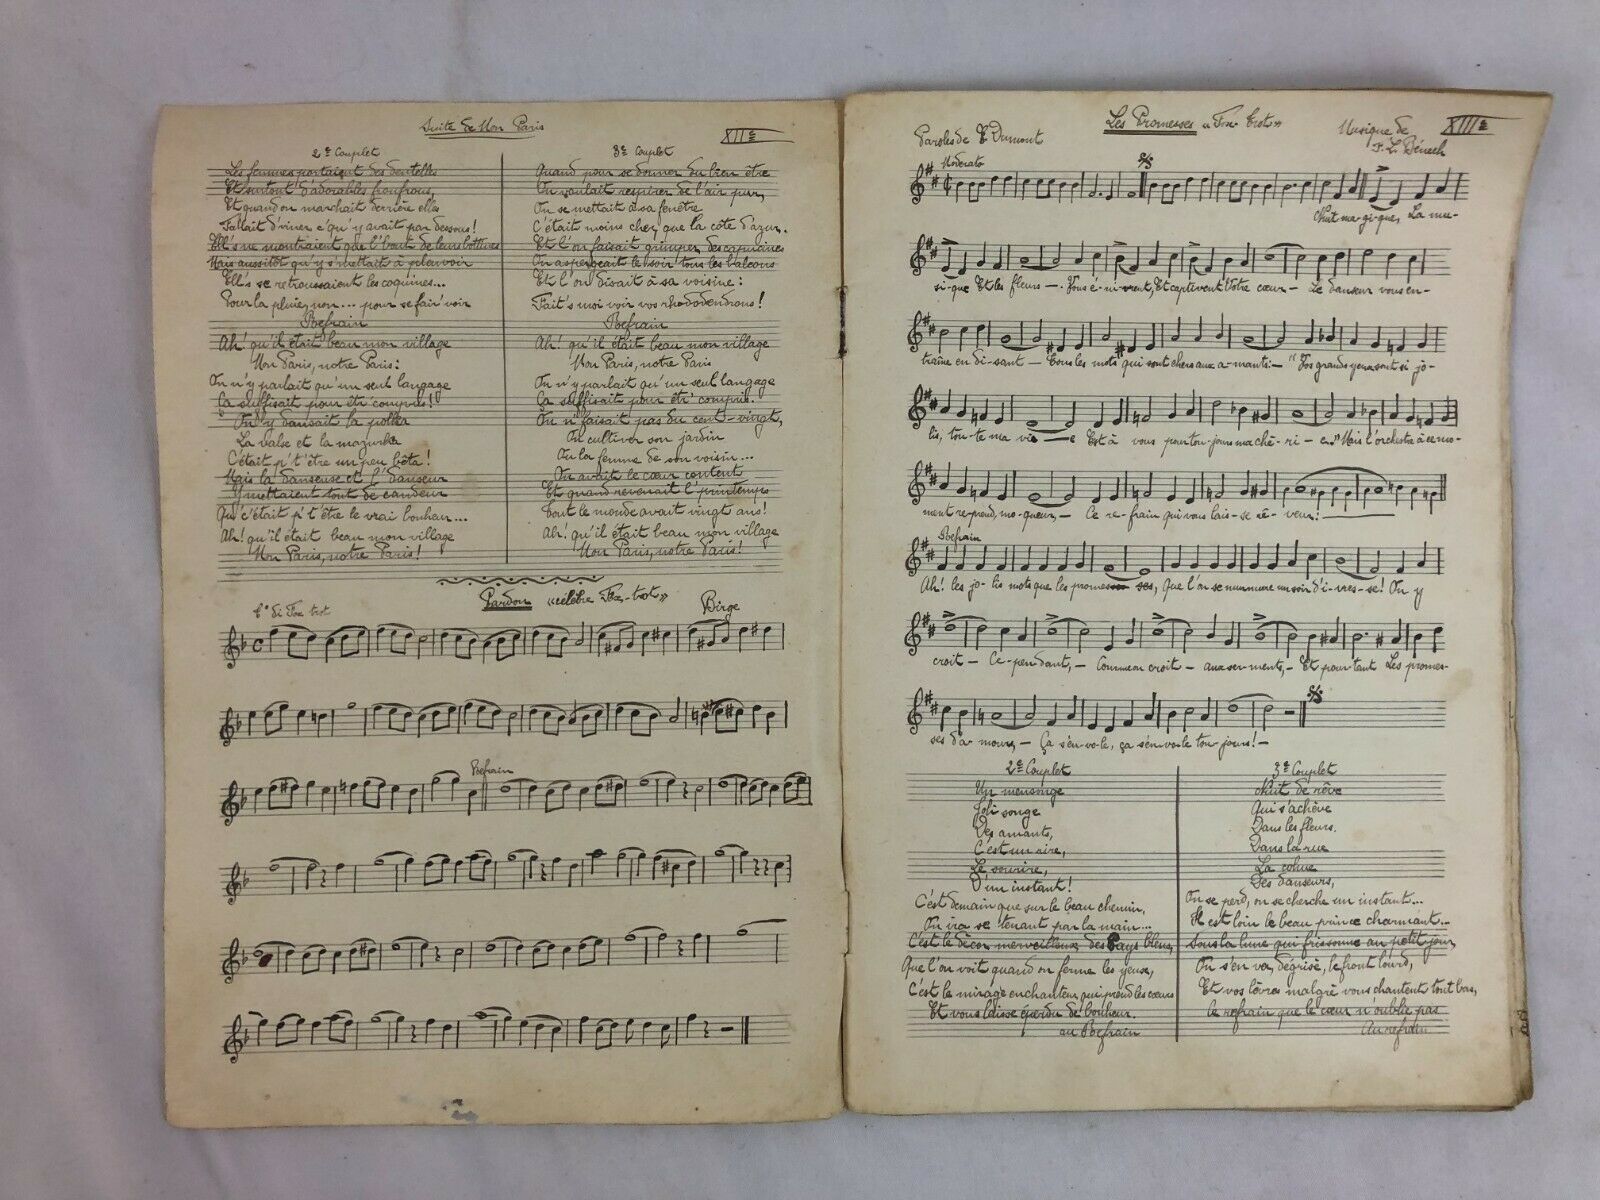 Suite de Mon Paris
XIIe
2e Couplet
Les femmes portaient des dentelles
Et surtout d'adorables froufrous,
Et quand on marchait derrière elles
Fallait d'viner c'qu'y avait par dessous!
Ell's ne montraient que l'bout de leurs bottines
Mais aussitôt qu'y s'mettait à pleuvoir
Ell's se retroussaient les coquines...
Pour la pluie, non... pour se fair' voir
Refrain
Ah! qu'il était beau mon village
Mon Paris, notre Paris:
On n'y parlait qu'un seul langage
Ça suffisait pour êtr' compris!
On y dansait la polka
La valse et la mazurka
C'était p't'être un peu bêta!
Mais la danseuse et l' danseur
Y mettaient tout de candeur
Qu'c'était p't'être le vrai bonheur...
Ah! qu'il était beau mon village
Mon Paris, notre Paris!
3e Couplet
Quand pour se donner du bien être
On voulait respirer de l'air pur,
On se mettait à sa fenêtre
C'était moins cher que la côte d'azur.
Et l'on faisait grimper des capucines
On aspergeait le soir tous les balcons
Et l'on disait à sa voisine:
Fait's moi voir vos rhododendrons!
Refrain
Ah! qu'il était beau mon village
Mon Paris, notre Paris
On n'y parlait qu'un seul langage
Ça suffisait pour êtr' compris.
On n'faisait pas du cent-vingt,
On cultiver son jardin
Ou la femme de son voisin...
On avait le cœur content
Et quand revenait l'printemps
Tout le monde avait vingt ans!
Ah! qu'il était beau mon village
Mon Paris, notre Paris!
Pardon "célèbre Fox-trot"
Birge
to di Fox trot
Refrain
Les Promesses "Fox-trot"
XIIIe
Paroles de E Dumont
Musique de
F. L. Bénech
Moderato
Nuit ma-gi-que, La mu-
si-que Et les fleurs - Vous é-ni-vrent, Et captivent Votre cœur - Le danseur vous en-
traîne en di-sant - Tous les mots qui sont chers aux a-mants: - "Vos grands yeux sont si jo-
lis, tou-te ma vie - e Est à vous pour tou-jours ma ché-ri-e." Mais l'orchestre à ce mo-
ment reprend, mo-queur, - Ce re-frain qui vous lais-se rê-veur:
Refrain
Ah! les jo-lis mots que les promes ses, Que l'on se murmure un soir d'i-vres-se! On y
croit - Ce-pen-dant, - Comme on croit - aux ser-ments, - Et pour-tant Les promes-
ses d'a-mour, - Ça s'en-vo-le, ça s'en-vo-le tou-jours! -
2e Couplet
Un mensonge
Joli songe
Des amants,
C'est un rire,
Le sourire,
D'un instant!
C'est demain que sur le beau chemin,
On ira se tenant par la main...
C'est le décor merveilleux des Pays bleus,
Que l'on voit quand on ferme les yeux,
C'est le mirage enchanteur, qui prend les cœurs
Et vous laisse éperdu de bonheur.
au Refrain
3e Couplet
Nuit de rêve
Qui s'achève
Dans les fleurs.
Dans la rue
La cohue
Des danseurs,
On se perd, on se cherche un instant...
Il est loin le beau prince charmant...
Sous la lune qui frissonne au petit jour,
On s'en va, dégrisé, le front lourd,
Et vos lèvres malgré vous chantent tout bas,
Ce refrain que le cœur n'oublie pas
Au refrain